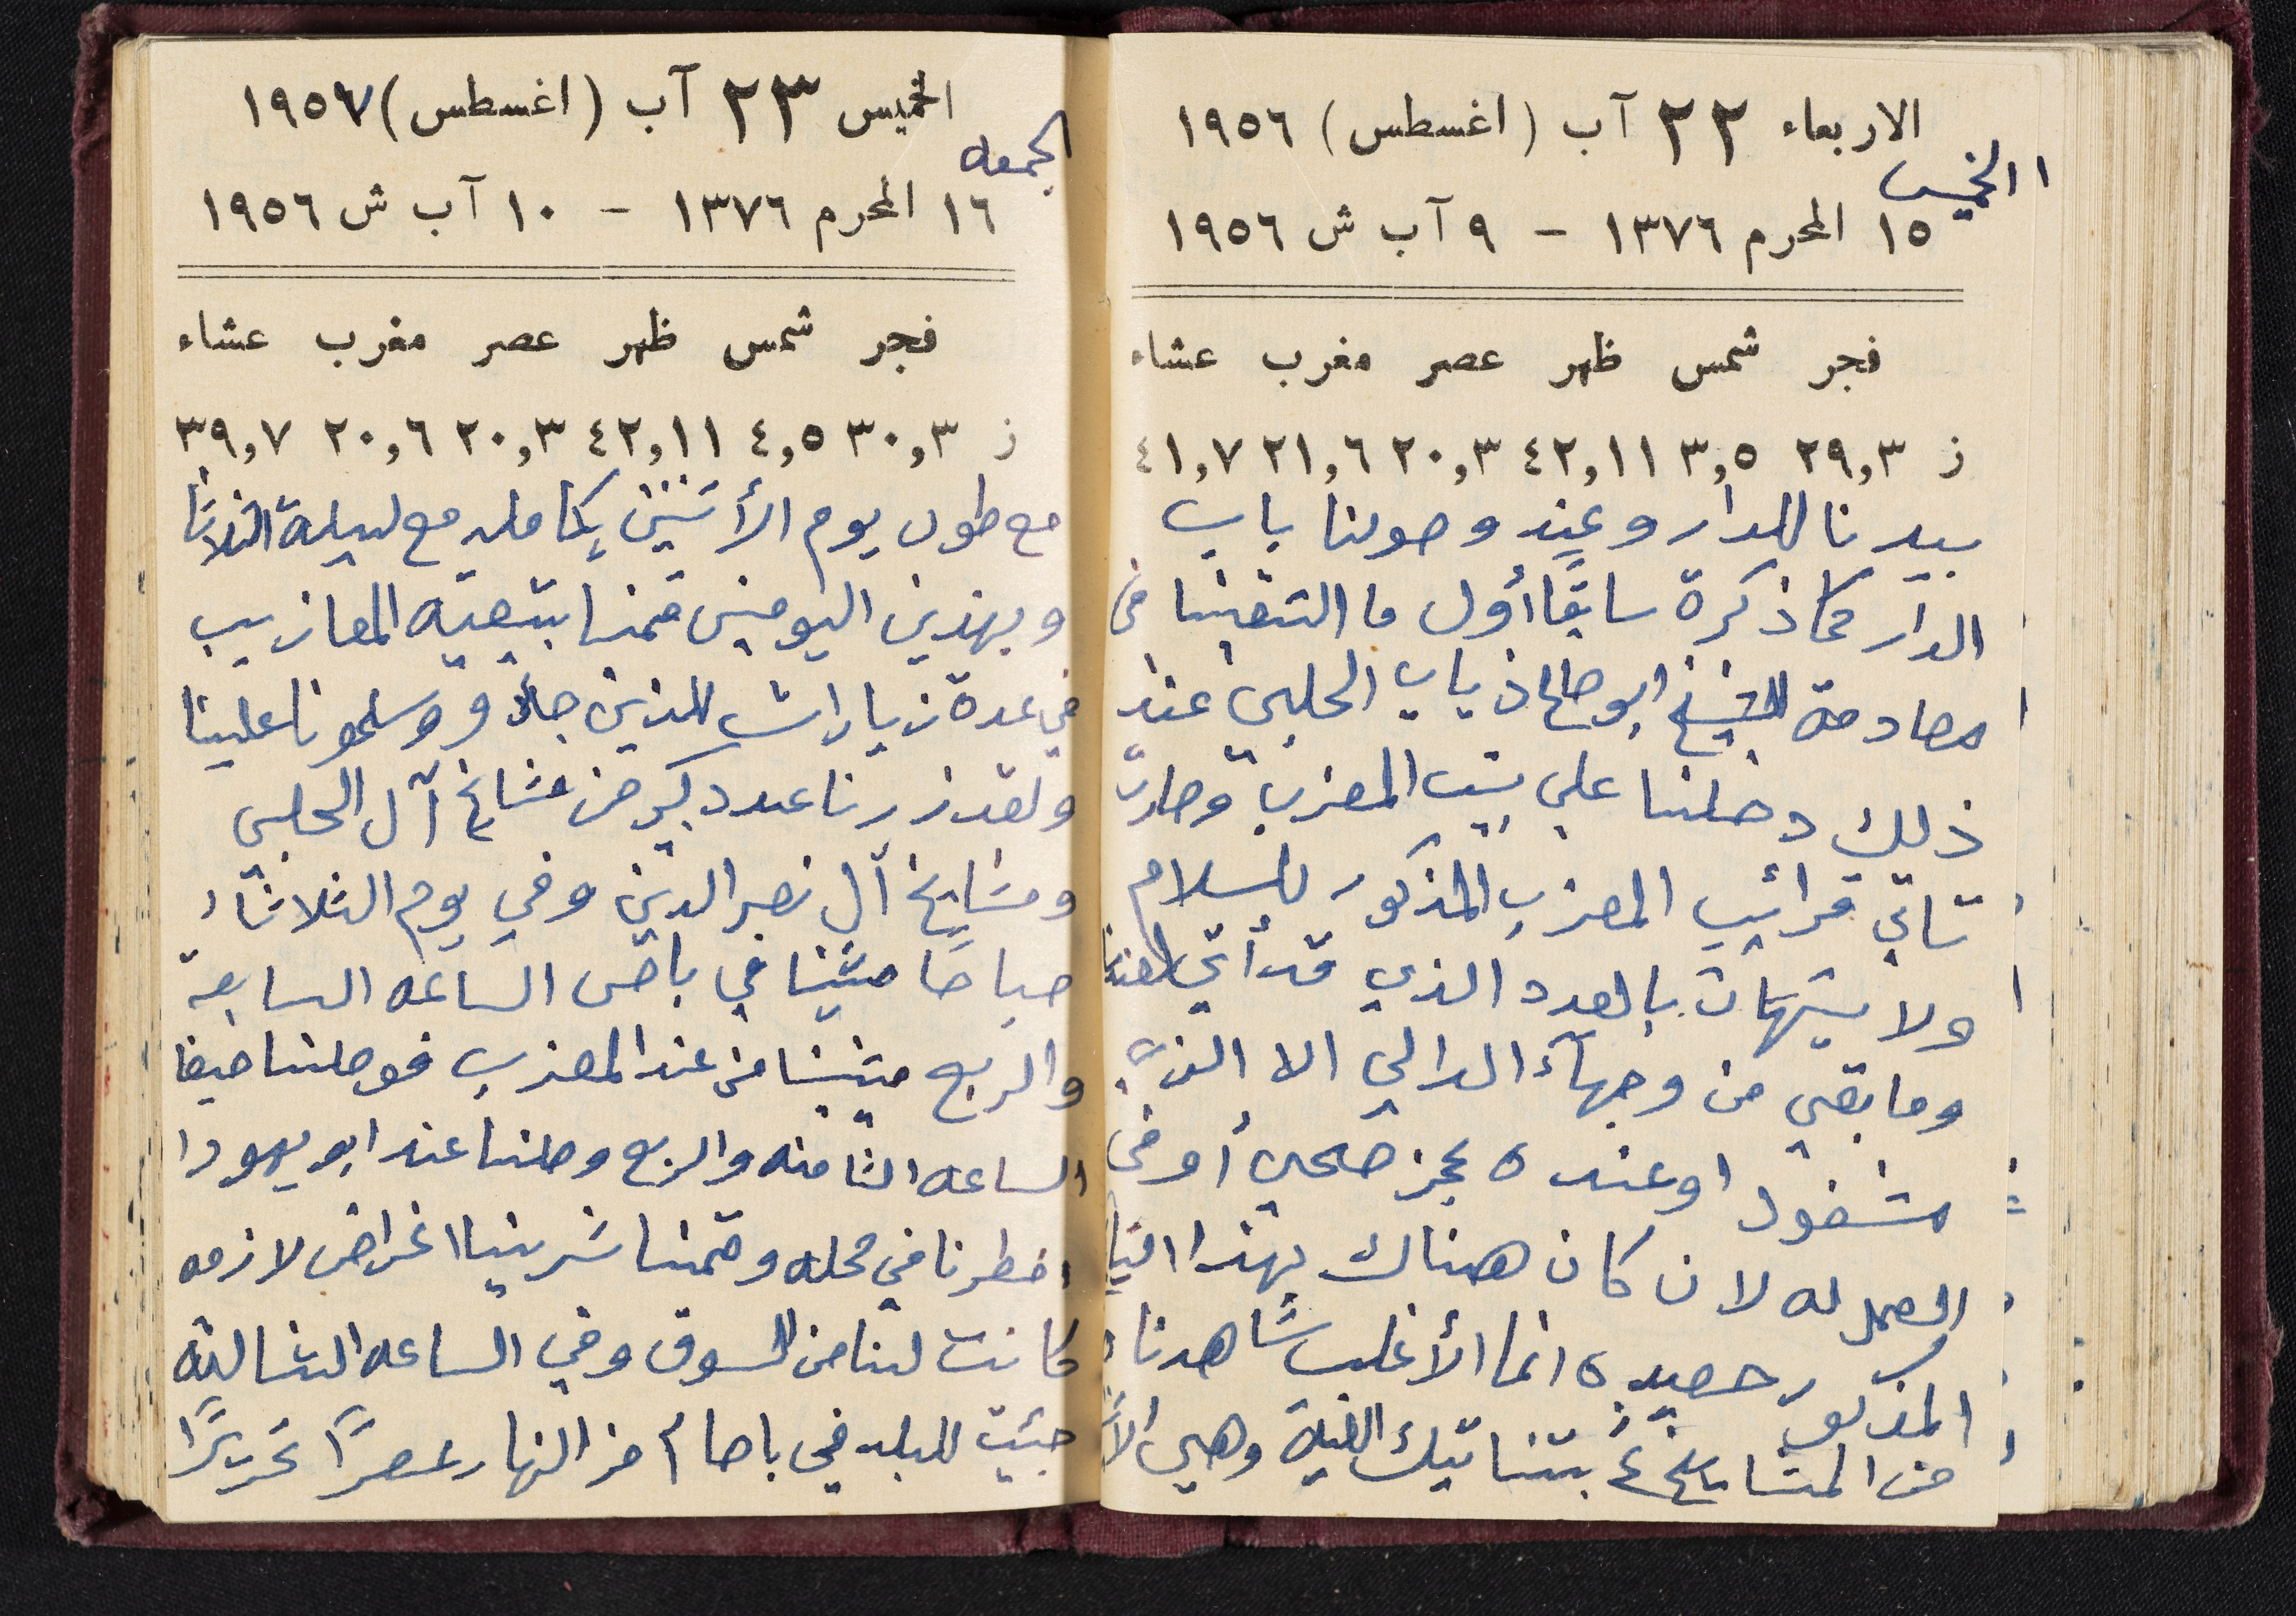 الاربعاء ٢٢ آب (اغسطس) ١٩٥٦
الخميس
١٥ المحرم ١٣٧٦ – ٩ آب ش ١٩٥٦
فجر شمس ظهر عصر مغرب عشاء
ز ٢٩,٣ ٣,٥ ٤٢,١١ ٢٠,٣ ٢١,٦ ٤١,٧
بيدنا للدار وعند وصولنا باب
الدار كما ذكرة سابقاً أول ما التقينا في
مصادمة الشيخ ابو صالح ذياب الحلبي عند
ذلك دخلنا على بيت المعزب وصارت
تأتي قرائب المعزب المذكور للسلام
ولا يستهان بالعدد الذي قد أتي لعندنا
وما بقي من وجهآء الدالي الا الذي
مشغول او عنده عجز صحي أو في
العمل له لان كان هناك بهذا
المذكور حصيده انما الأغلب شاهدنا
من المشايخ بتنا تيك الليلة وهي
الخميس ٢٣ آب (اغسطس) ١٩٥٧
الجمعه
١٦ المحرم ١٣٧٦ – ١٠ آب ش ١٩٥٦
فجر شمس ظهر عصر مغرب عشاء
ز ٣٠,٣ ٤,٥ ٤٢,١١ ٢٠,٣ ٢٠,٦ ٣٩,٧
مع طول يوم الأثنين بكامله مع ليلة الثلاثا
وبهذين اليومين قمنا بتعية المعازيب
في عدة زيارات للذين جاؤو وسلمونا علينا
ولقد زرنا عدد كبير من مشايخ آل الحلبي
ومشايخ آل نصر الدين وفي يوم الثلاثاء
صباحاً مشينا في باص الساعه السابعة
والربع مشينا من عند المعزب فوصلنا ضيفا
الساعه الثامنه والربع وصلنا عند ابو يهودا
افطرنا في محله وقمنا شرينيا اغراض لازمه
كانت لنا من السوق وفي الساعه الثالثه
جئيت للبلد في باص من النهار عصراً تحريرًا